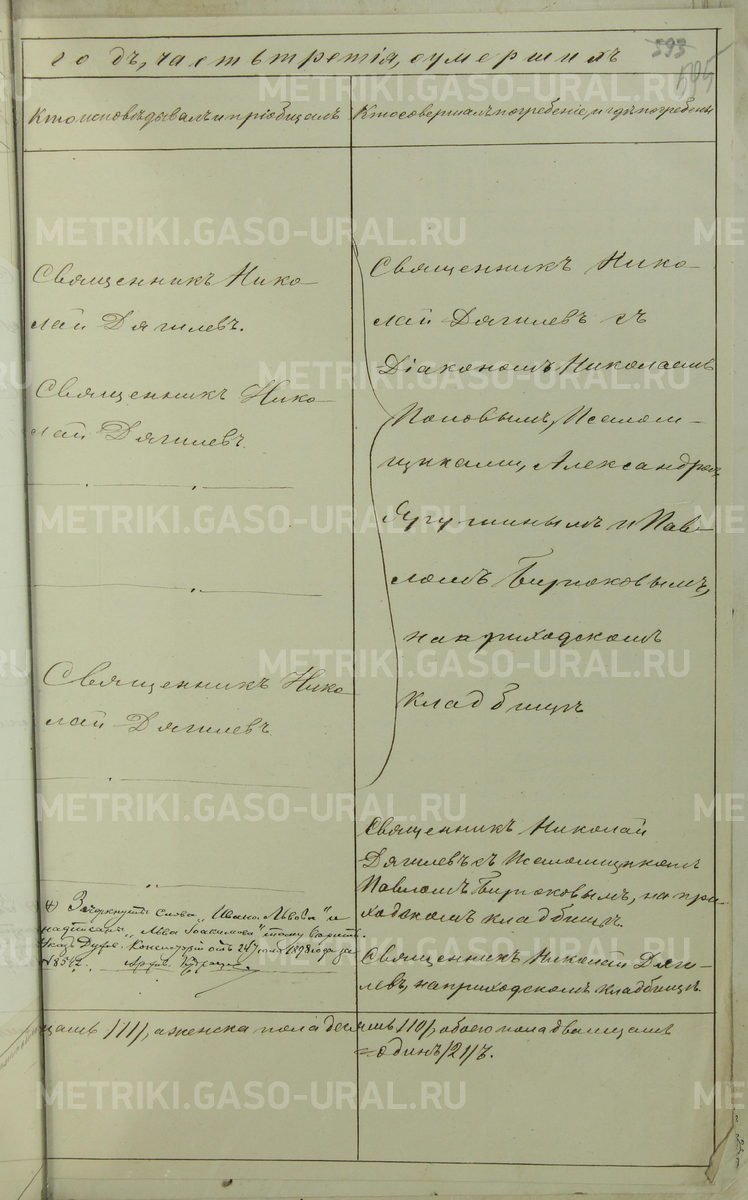 годъ, часть третія, о умершихъ
593
595
Кто исповѣдывалъ и пріобщалъ
Кто совершалъ погребеніе, и гдѣ погребены
Священникъ Нико-
лай Дягилевъ.
Священникъ Нико-
лай Дягилевъ.
Священникъ Нико-
лай Дягилевъ
Священникъ Нико-
лай Дягилевъ съ
Діакономъ Николаемъ
Поповымъ, Псалом-
щиками, Александромъ
и Пав-
ломъ Бирюковымъ,
на приходскомъ
кладбищѣ
Священникъ Николай
Дягилевъ съ Псаломщикомъ
Павломъ Бирюковымъ, на при-
ходскомъ кладбищѣ.
Священникъ Николай Дяги-
левъ, на приходскомъ кладбищѣ.
+) Зачеркнуты слова „Ивана Львова" и
надписаны „Льва Іоакимова"
Дух. Консисторіи отъ 24 1898 года за
№ 8542.
цать /11/, а женска пола десять /10/, обоего пола двадцать
одинъ /21/ъ.
METRIKI.GASO-URAL.RU